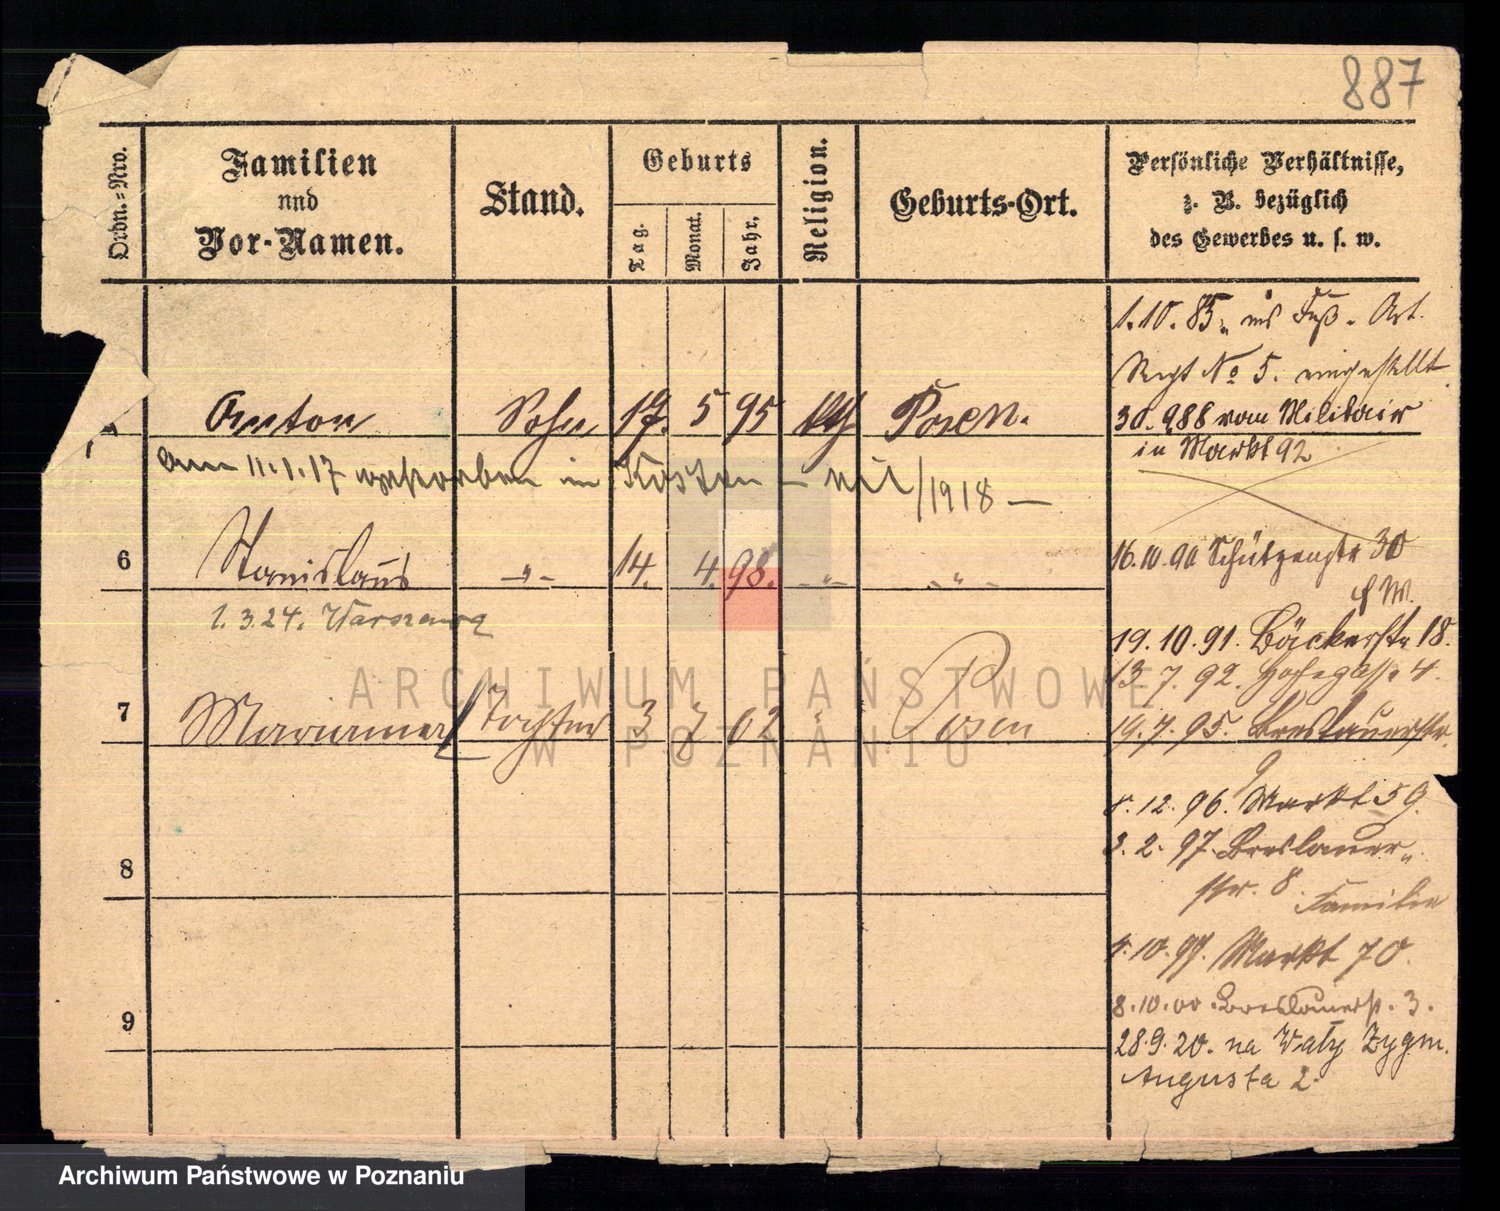 887
Ordn.=Nro.
Familien
und
Vor-Namen.
Stand.
Geburts
Tag.
Monat.
Jahr.
Religion.
Geburts-Ort.
Persönliche Verhältnisse,
z. B. bezüglich
des Gewerbes u. s. w.
1.10.85. ins Fuß. Art.
Regt No 5. eingestellt
Anton Sohn 17. 5 95 kth Posen.
30.9.88 vom Militair
in Markt 92
am 11.1.17 gestorben in Kosten – /1918 –
6 Stanislaus -"- 14. 4. 98. -"- -"-
16.10.90 Schützenstr 30
1.3.24. Warszawa
19.10.91. Bäckerstr 18.
13.7.92. Hofegasse 4.
7 Marianna Tochter 3 7 02 " Posen
19.7.95. Breslauerstr.
9
8.12.96. Markt 59
3.2.97. Breslauer-
str. 8. Familie
8
4.10.99. Markt 70.
8.10.00. Breslauerst. 3.
9
28.9.20. na Wały Zygm.
Augusta 2.
ARCHIWUM PAŃSTWOWE
W POZNANIU
Archiwum Państwowe w Poznaniu